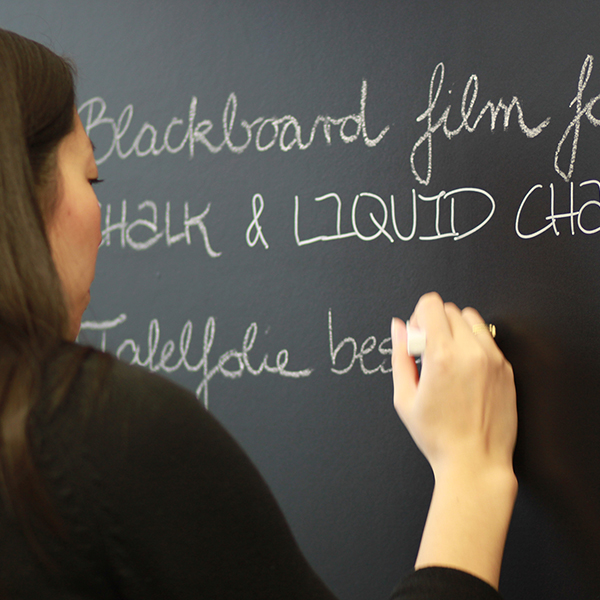 Blackboard film fo
CHALK & LIQUID CHA
Tafelfolie bes